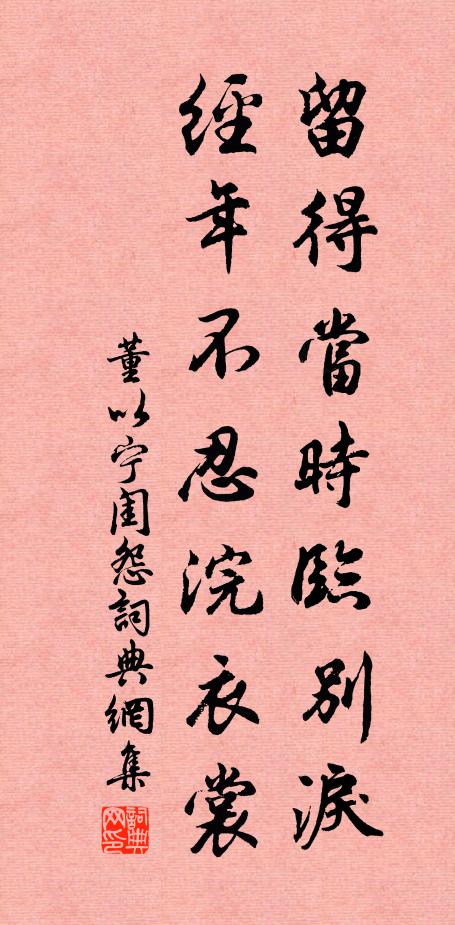 留得當時臨別淚
經年不忍浣衣裳
董以宁闺怨詞典網集
詞典网印